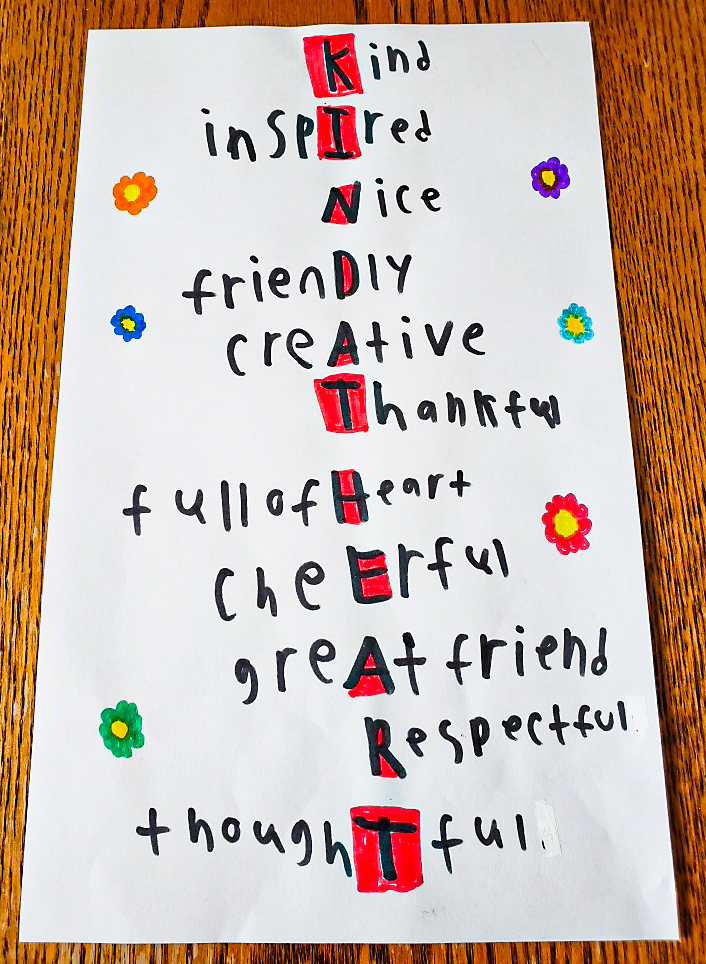 Kind
inspIred
Nice
frienDly
creAtive
Thankful
full of Heart
cheErful
greAt friend
Respectful
thoughTful